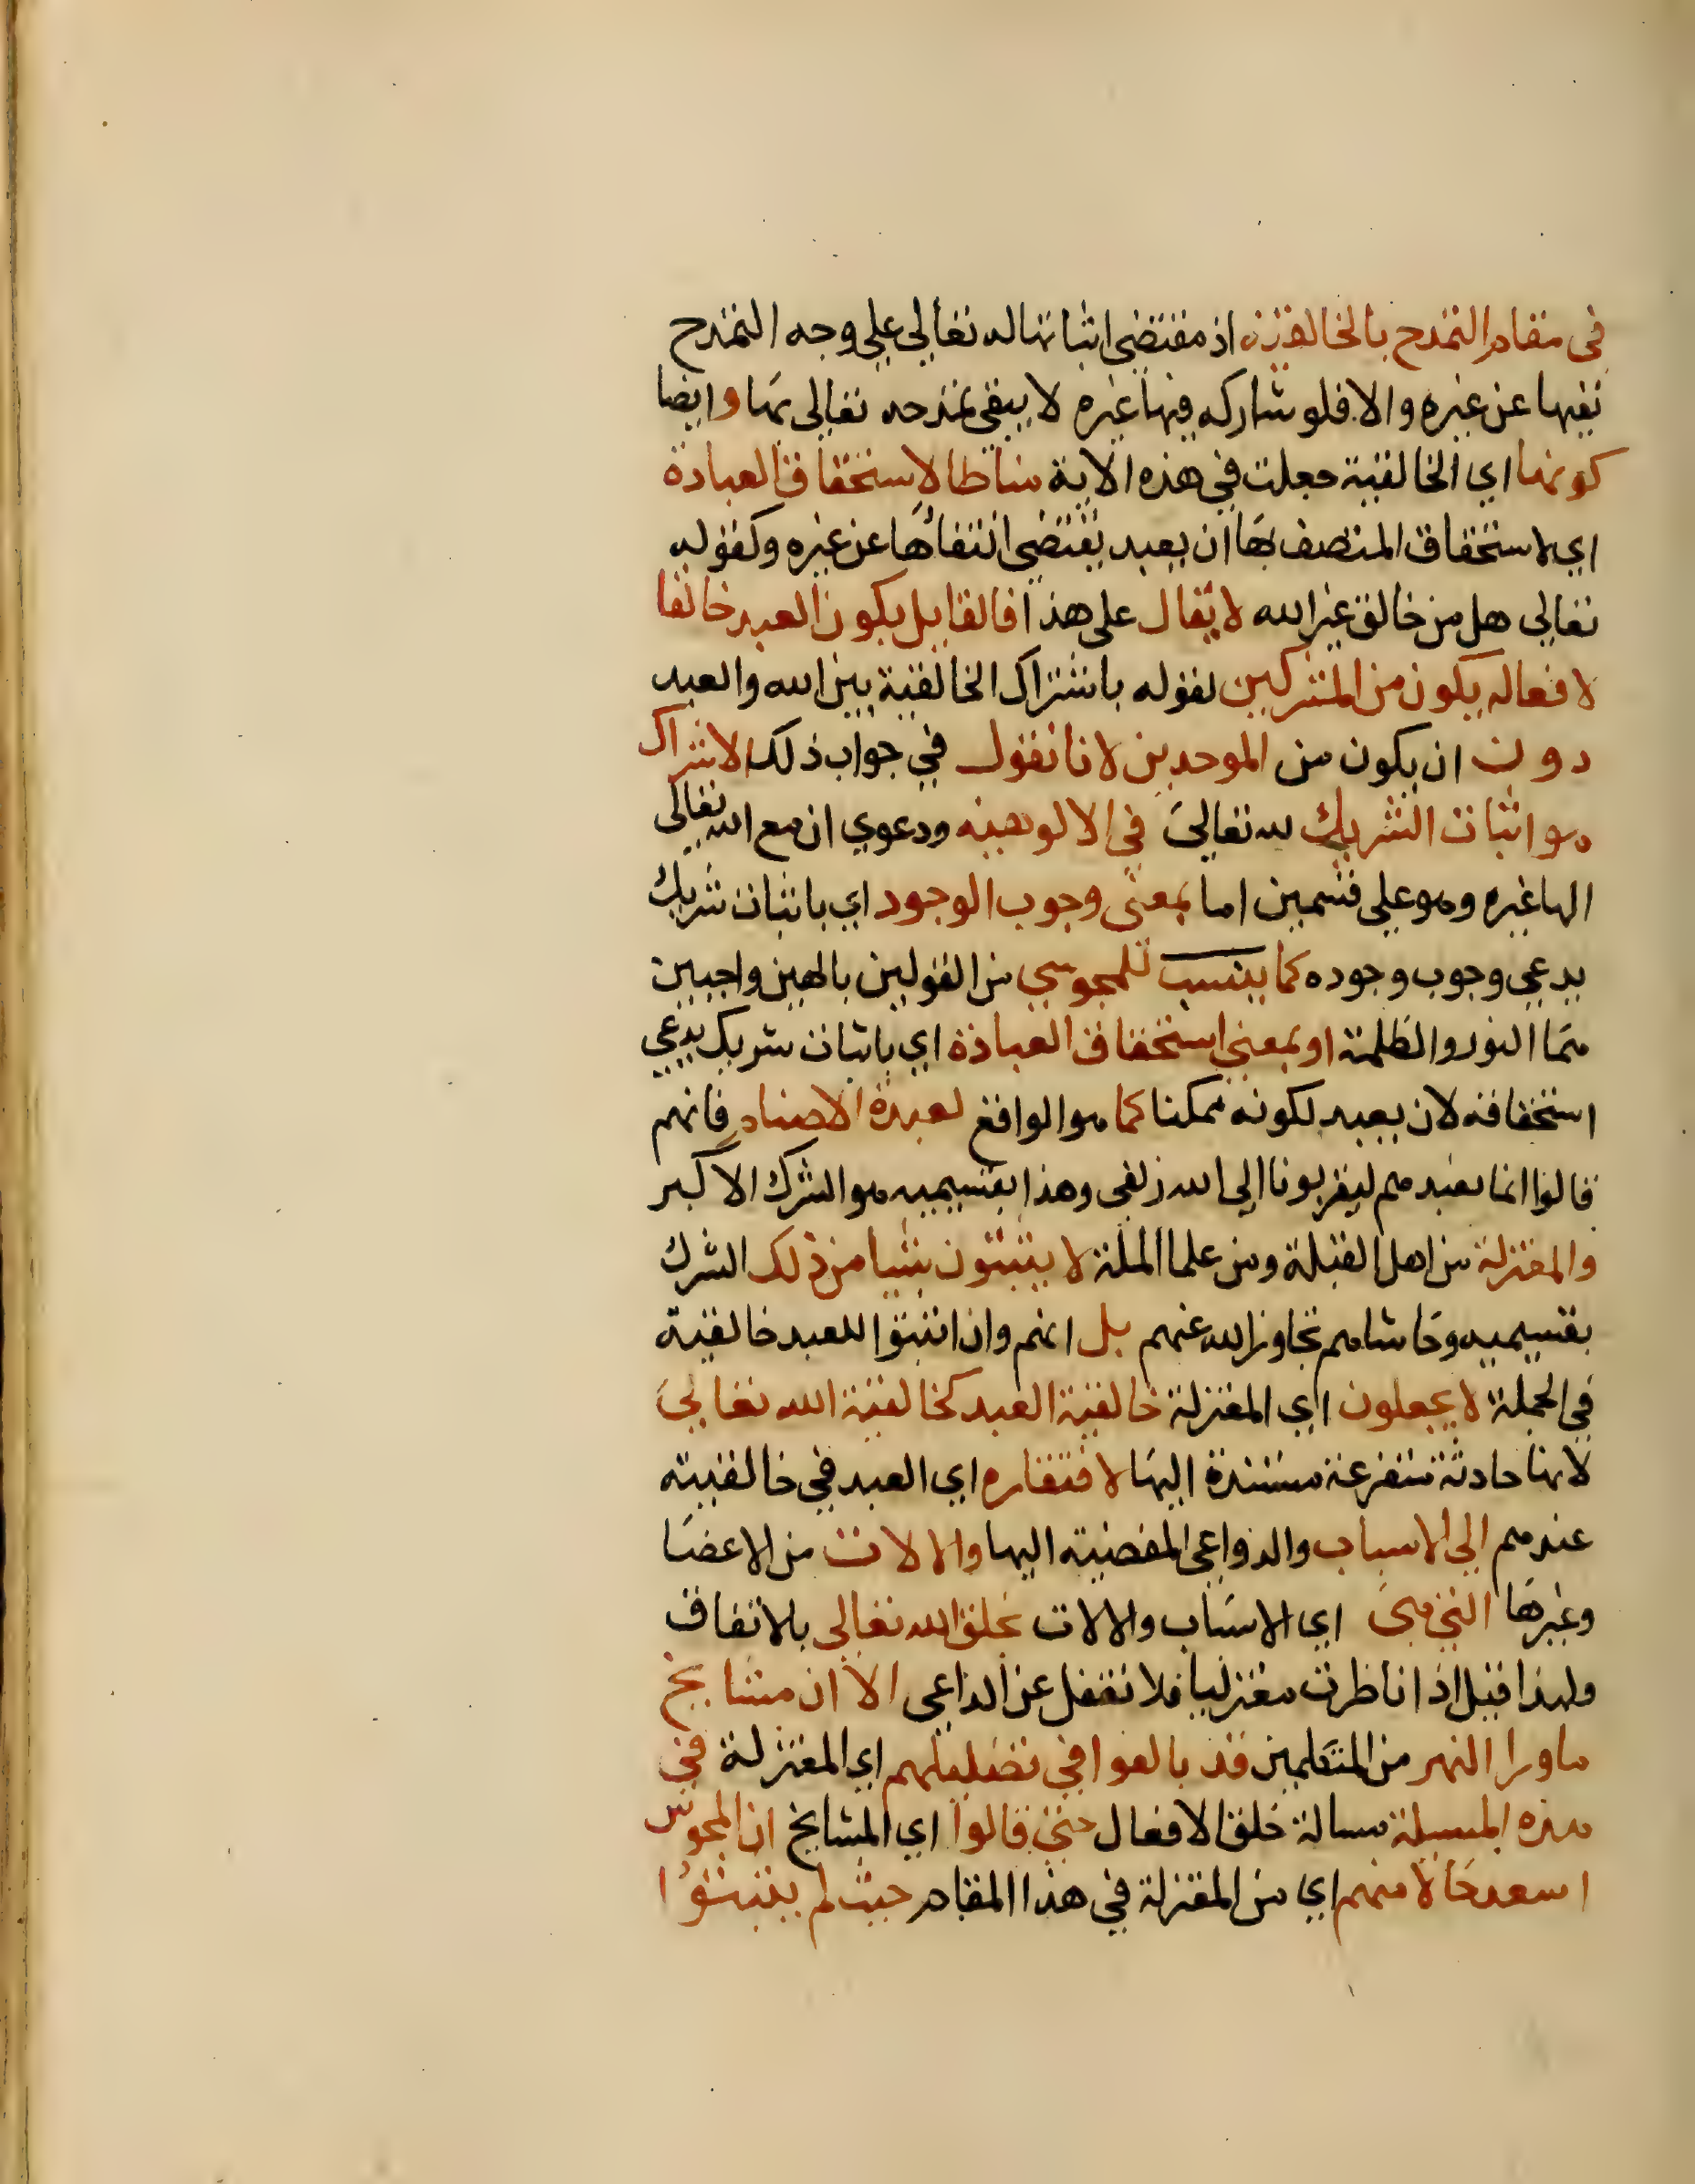 في مقام التمدح بالخالقية اذ مقتضى اثباتها له تعالى على وجه التمدح
نفيها عن غيره والا فلو شاركه فيها غيره لا يبقى تمدحه تعالى بها وايضا
كونها اي الخالقية جعلت في هذه الاية مناطا لاستحقاق العبادة
اي لاستحقاق المتصف بها ان يعبد يقتضي انتفاءُها عن غيره وكقوله
تعالى هل من خالق غير الله لا يقال على هذا فالقايل بكون العبد خالقا
لافعاله يكون من المشركين لقوله باشتراك الخالقية بين الله والعبد
دون ان يكون من الموحدين لانا نقول في جواب ذلك الاشراك
هو اثبات الشريك لله تعالى في الالوهيه ودعوي ان مع الله تعالى
الها غيره وهو على قسمين اما بمعنى وجوب الوجود اي باثبات شريك
يدعي وجوب وجوده كما ينسب للمجوسي من القولين بالهين واجبين
هما النور والظلمة او بمعنى استحقاق العبادة اي باثبات شريك يدعي
استحقاقه لان يعبد لكونه ممكنا كما هو الواقع لعبدة الاصنام فانهم
قالوا انما نعبدهم ليقربونا الى الله زلفى وهذا بقسيميه هو الشرك الاكبر
والمعتزلة من اهل القبلة ومن علما الملة لا يثبتون شيا من ذلك الشرك
بقسيميه وحاشاهم تجاوز الله عنهم بل انهم وان اثبتوا للعبد خالقية
في الجملة لا يجعلون اي المعتزلة خالقية العبد كخالقية الله تعالى
لانها حادثة متفرعة مستندة اليها لافتقاره اي العبد في خالقيته
عندهم الى الاسباب والدواعي المفضية اليها والالات من الاعضا
وغيرها التي هي اي الاسباب والالات بخلق الله تعالى بالاتفاق
ولهذا قيل اذا ناظرت معتزليا فلا تغفل عن الداعي الا ان مشايخ
ماورا النهر من المتكلمين قد بالغوا في تضليلهم اي المعتزلة في
هذه المسيلة مسالة خلق الافعال حتى قالوا اي المشايخ ان المجوس
اسعد حالا منهم اي من المعتزلة في هذا المقام حيث لم يثبتوا